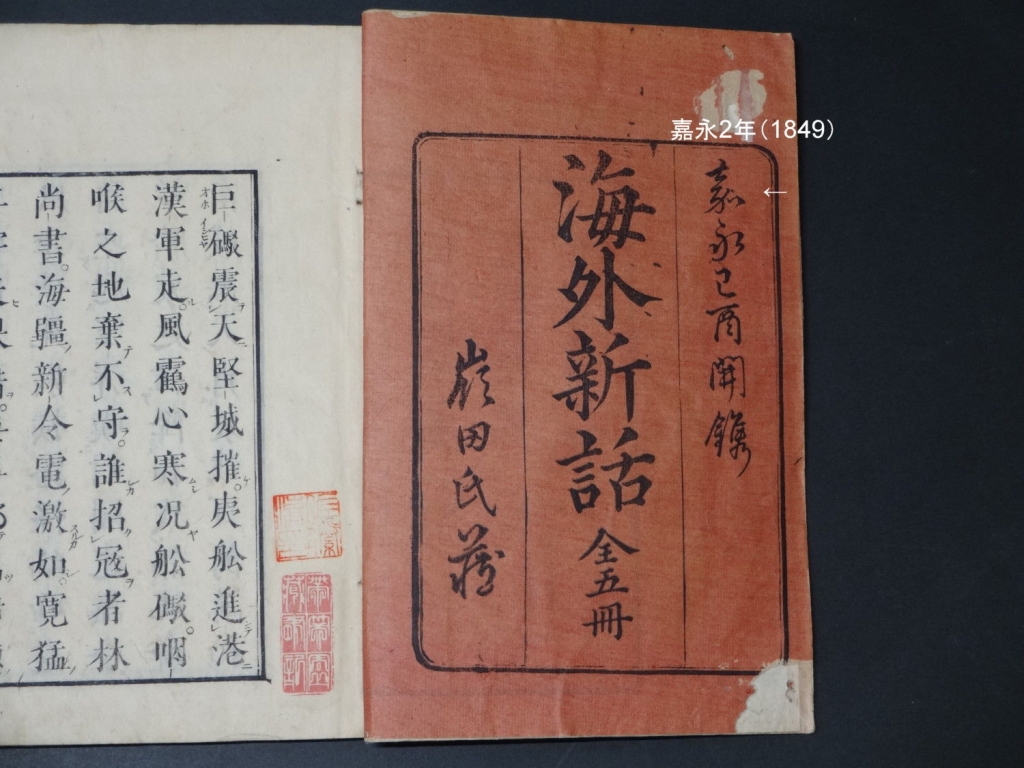 嘉永2年(1849)
←
嘉永己酉開鐫
海外新話 全五冊
嶺田氏蔵
巨礮震天堅城摧。夷舩進港
漢軍走。風靍心寒况舩礮。咽
喉之地棄不守。誰招冦者林
尚書。海疆新令電激如。寛猛